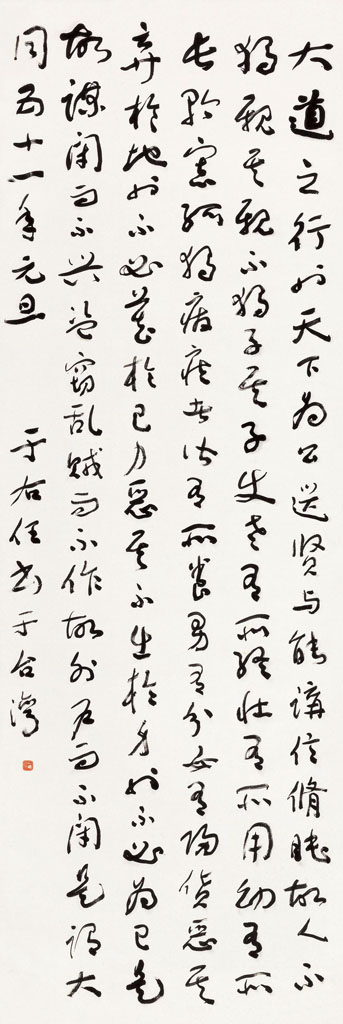 大道之行也天下為公選賢與能講信脩睦故人不
獨親其親不獨子其子使老有所終壯有所用幼有所
長矜寡孤獨廢疾者皆有所養男有分女有歸貨惡其
棄於地也不必藏於己力惡其不出於身也不必為己是
故謀閉而不興盜竊亂賊而不作故外戶而不閉是謂大
同 五十一年元旦 于右任書于台灣